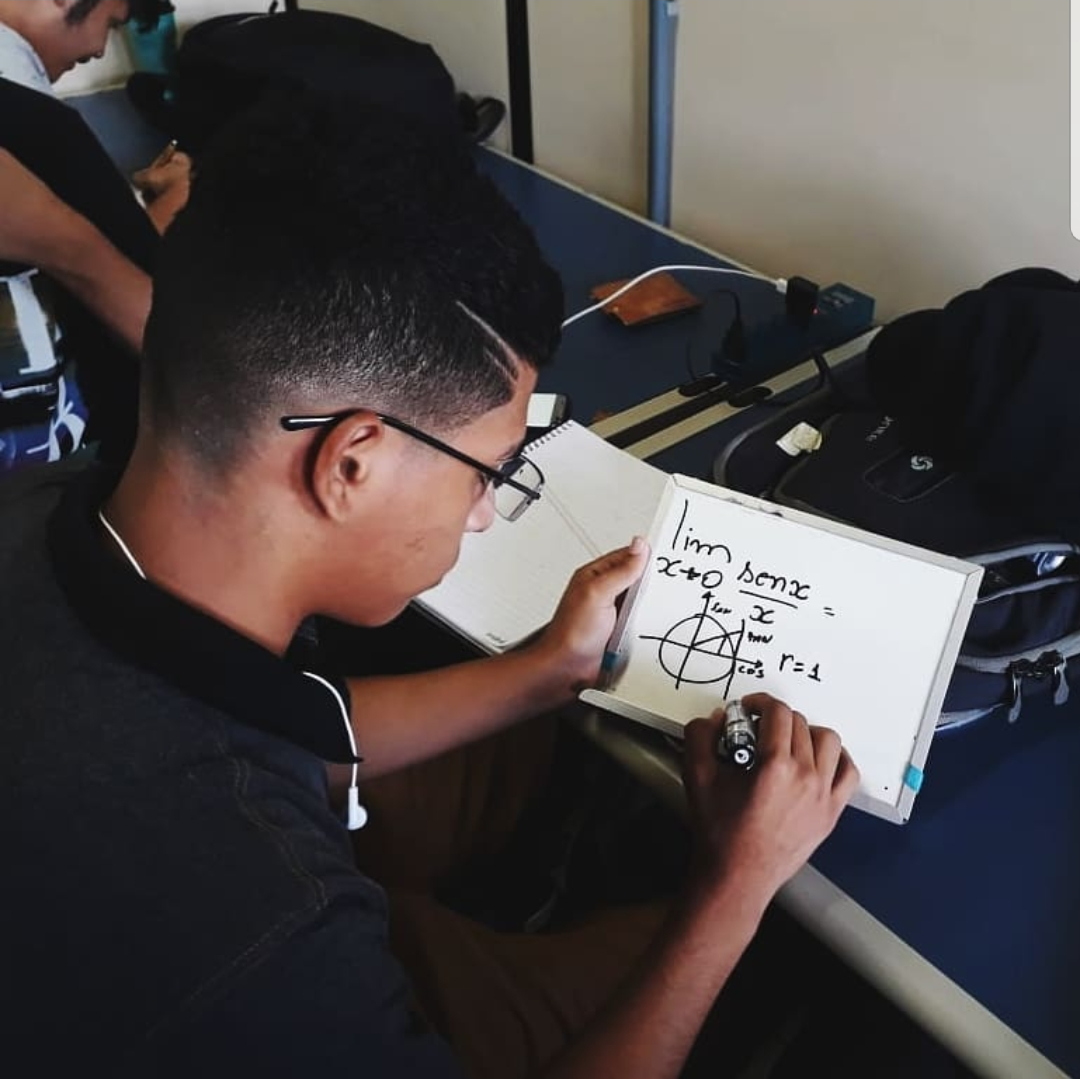 lim
x→0 senx
x =
sen
tan
cos r=1